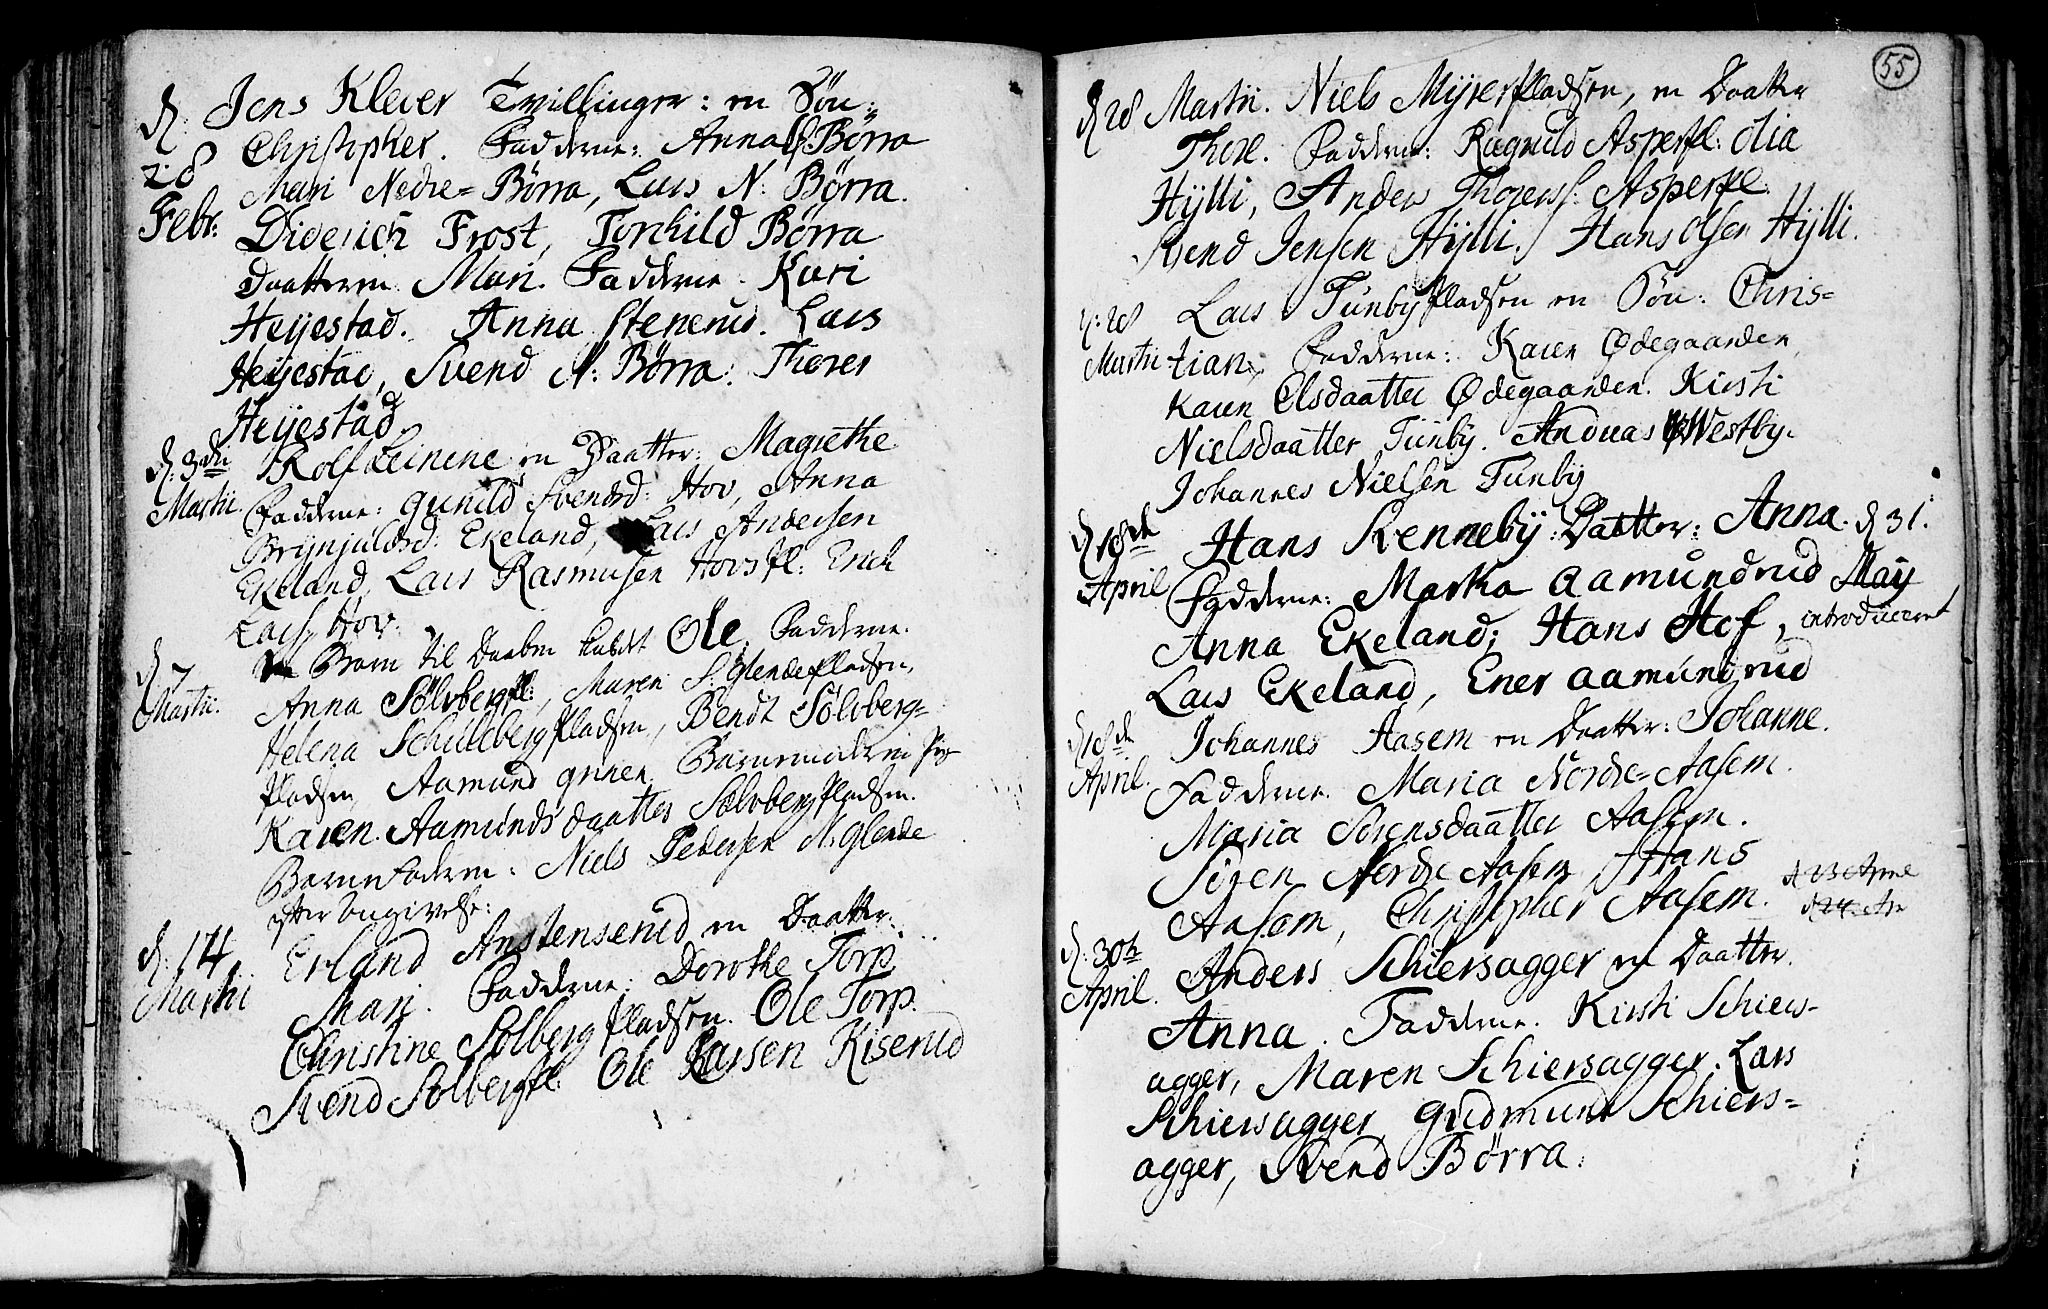 d: 28 Febr: Jens Klever Tvillinger: en Søn:
Christopher. Fadderne: Anna Børra
Mari Nedre=Børra, Lars N: Børra.
Diderich Frost, Torchild Børra
Daatteren Mari. Fadderne. Kari
Heÿestad. Anna Stenerud. Lars
Heÿestad, Svend N: Børra. Thorer
Heÿestad.
d: 3die Martii. Rolf Leinene en Daatter: Magrethe
Fadderne: Gunild Svendsd: Hov, Anna
Brÿnjulvsd: Ekeland, Lars Andersen
Ekeland, Lars Rasmusen Hovspl: Erich
Lars: Hov.
d 7 Martii. Barn til Daaben kaldet Ole. Fadderne.
Anna Sølvbergpl:, Maren S: Glendepladsen,
Helena Schulebergpladsen, Bendt Sølvberg=
pladsen, Aamund Grinen. Barnemoderen Pig
Karen Aamundsdaatter Sølvbergpladsen.
Barnefaderen: Niels Pedersen N: Glende
efter Angivelse:
d. 14 Martii Erland Anstenserud en Daatter:
Mari. Fadderne: Dorothe Torp
Christine Solbergpladsen. Ole Torp.
Svend Solbergpl: Ole Larssen Kiserud
55
d 28 Martii. Niels Mÿrerpladsen, en Daatter
Thore. Fadderne: Ragnild Asperpl: Olia
Hÿlli, Anders Thorers: Asperpl.
Svend Jensen Hÿlli. Hans Olsen Hÿlli.
d: 28 Martii Lars Tunbÿpladsen en Søn: Chris=
tian, Fadderne: Karen Ødegaarden,
Karen Elsdaatter Ødegaarden. Kirsti
Nielsdaatter Tunbÿ. Andreas Westbÿ.
Johannes Nielsen Tunbÿ
d 18de April Hans Renneby: Datter: Anna. d 31.
Fadderne: Marka Aamundrud Maÿ
Anna Ekeland; Hans Hof, introduceret
Lars Ekeland, Ener Aamundrud
d 18de April. Johannes Aasem en Daatter: Johanne.
Fadderne. Maria Nordre=Aasem.
Maria Sørensdaatter Aasem.
Søren Nordre Aasem, Hans
Aasem, Christopher Aasem. d 23 April
d 24 Apr
d: 30te April. Anders Schiersagger en Daatter.
Anna. Fadderne. Kirsti Schiers-
agger, Maren Schiersagger. Lars
Schiersagger, Gudmund Schiers=
agger, Svend Børra: